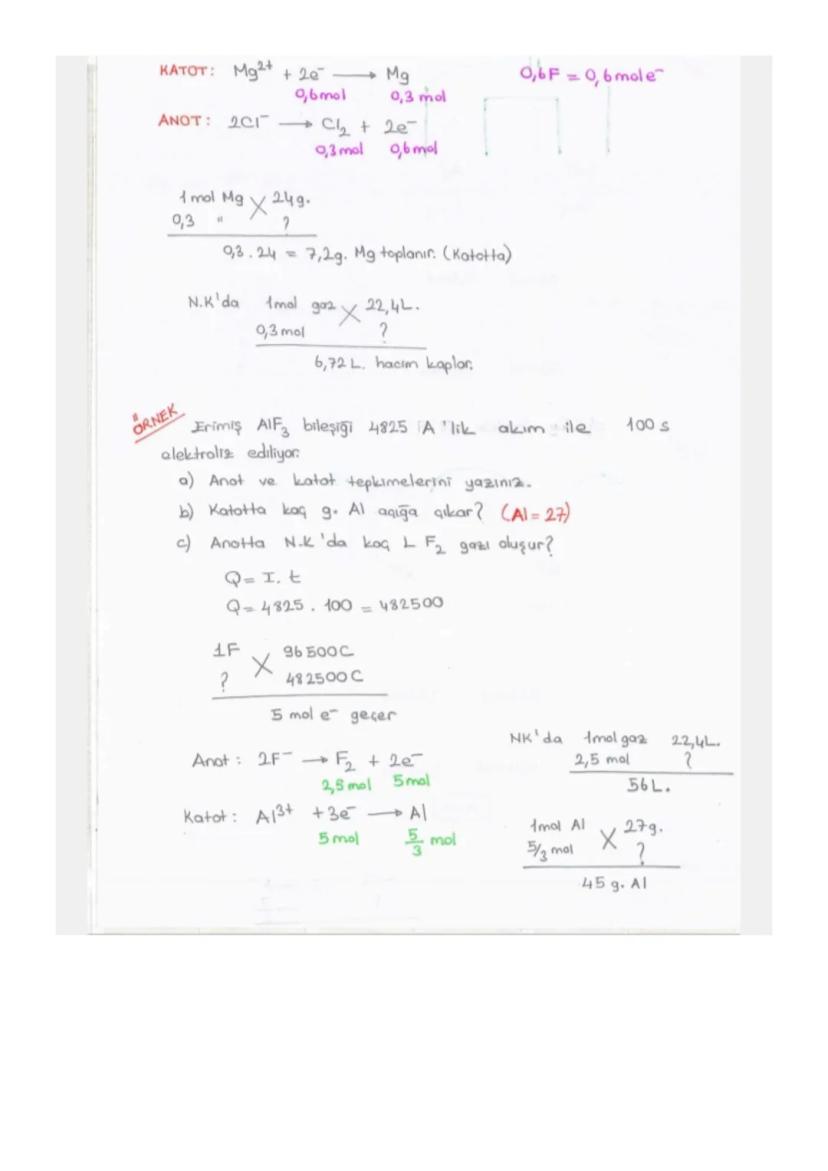 KATOT: Mg²⁺ + 2e⁻ ⟶ Mg 0,6F = 0,6 mol e⁻
0,6 mol 0,3 mol
ANOT: 2Cl⁻ ⟶ Cl₂ + 2e⁻
0,3 mol 0,6 mol
1 mol Mg 24g.
0,3 " ?
0,3 . 24 = 7,2g. Mg toplanır. (Katotta)
N.K'da 1mol gaz 22,4L.
0,3 mol ?
6,72 L. hacim kaplar.
ÖRNEK Erimiş AlF₃ bileşiği 4825 A'lik akım ile 100 s
elektroliz ediliyor.
a) Anot ve katot tepkimelerini yazınız.
b) Katotta kaç g. Al açığa çıkar? (Al = 27)
c) Anotta N.K'da kaç L F₂ gazı oluşur?
Q = I. t
Q = 4825 . 100 = 482500
1F 96500C
? 482500C
5 mol e⁻ geçer
Anot : 2F⁻ ⟶ F₂ + 2e⁻
2,5 mol 5 mol
Katot : Al³⁺ + 3e⁻ ⟶ Al
5 mol 5/3 mol
NK'da 1mol gaz 22,4L.
2,5 mol ?
56L.
1mol Al 27g.
5/3 mol ?
45 g. Al